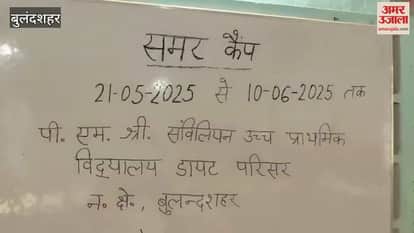 बुलंदशहर
अमर उजाला
amarujala.com
समर कैंप
21-05-2025 से 10-06-2025 तक
पी. एम. श्री. संविलियन उच्च प्राथमिक
विद्यालय डायट परिसर
न. क्षे., बुलन्दशहर